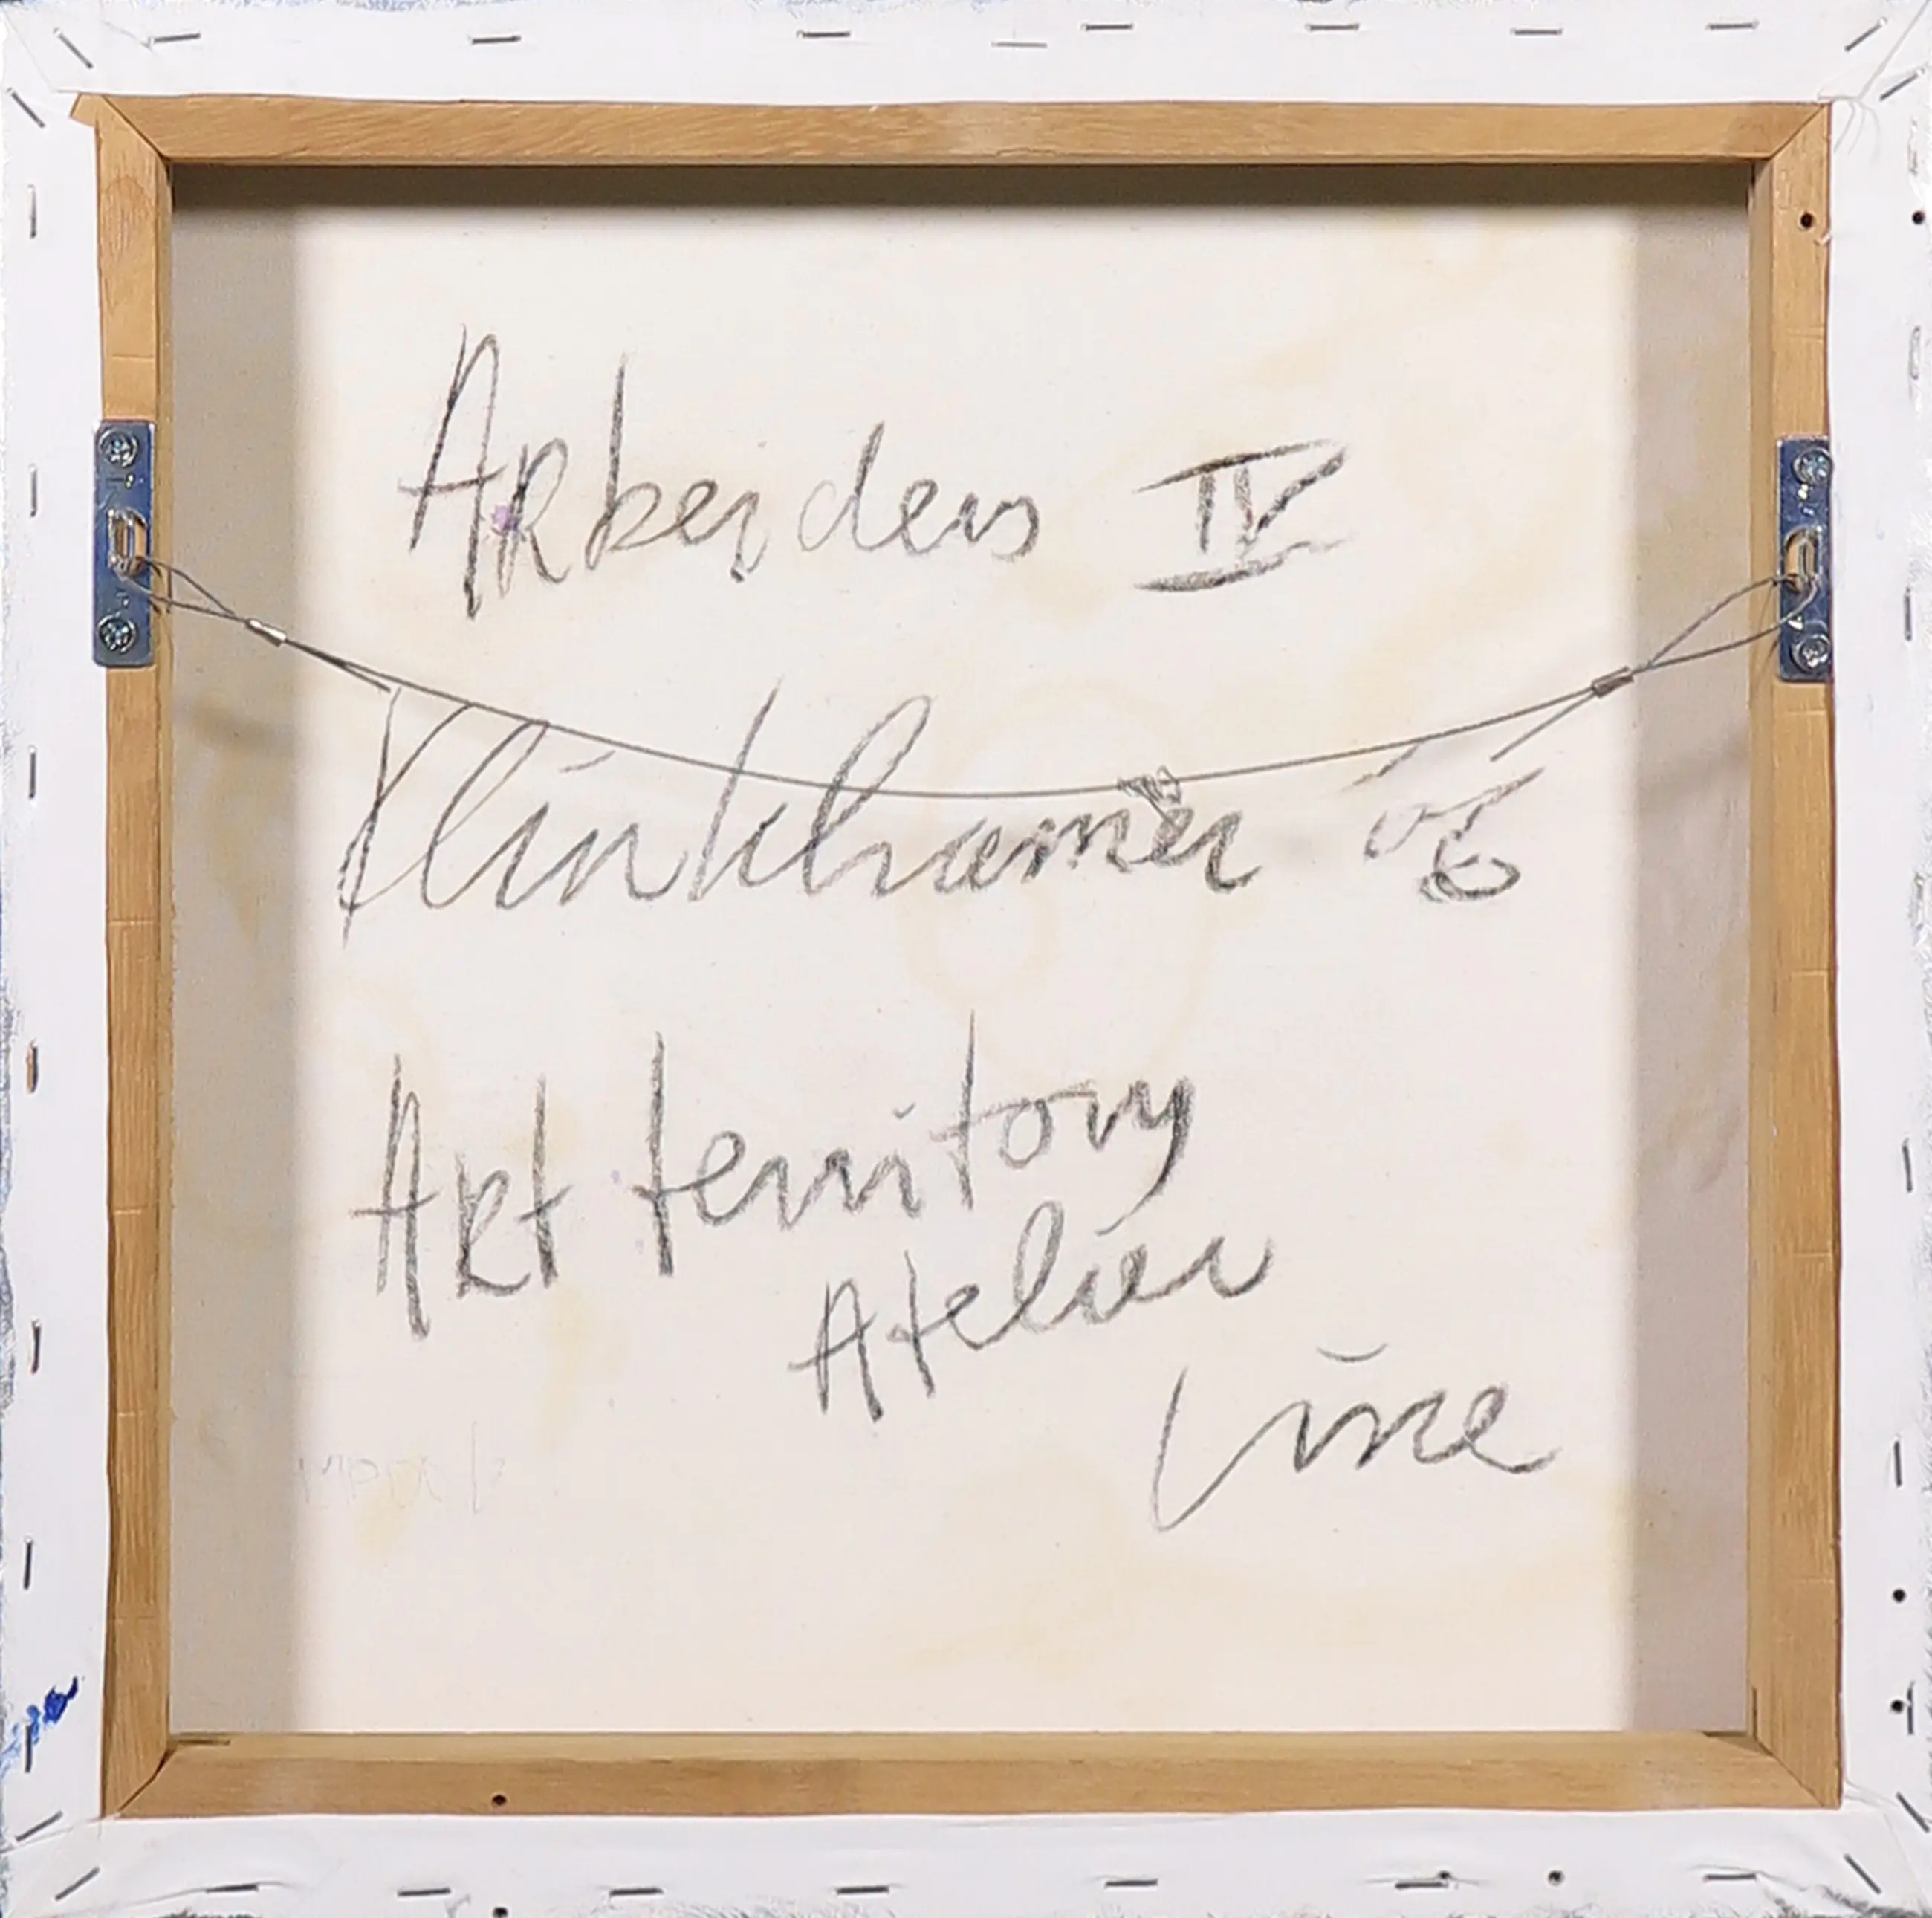 Arbeiders IV
Klinkhamer '06
Art territory
Atelier
Line